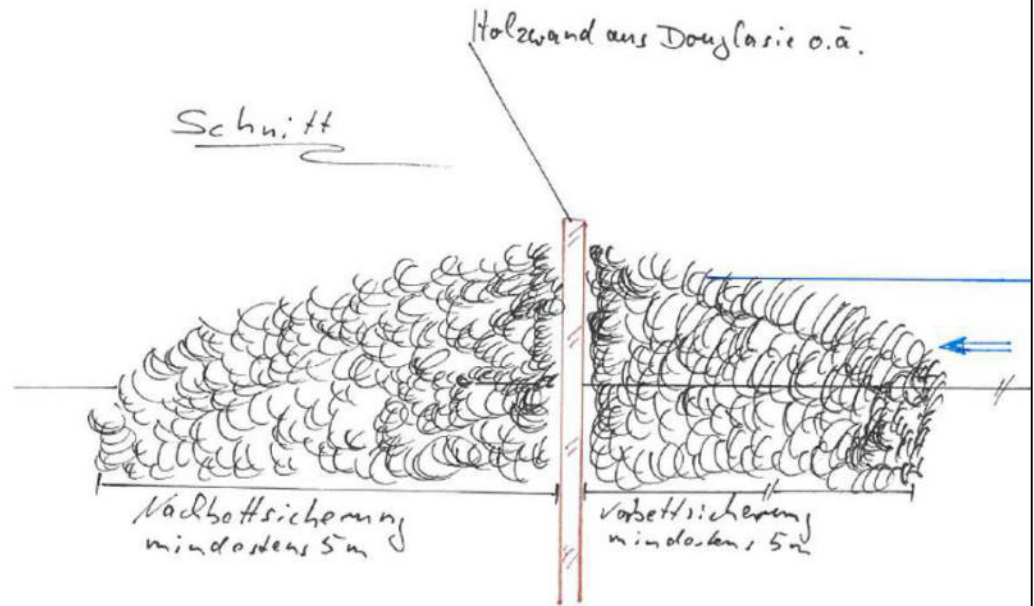 Holzwand aus Douglasie o.ä.
Schnitt
Nachbettsicherung
mindestens 5m
Vorbettsicherung
mindestens 5m